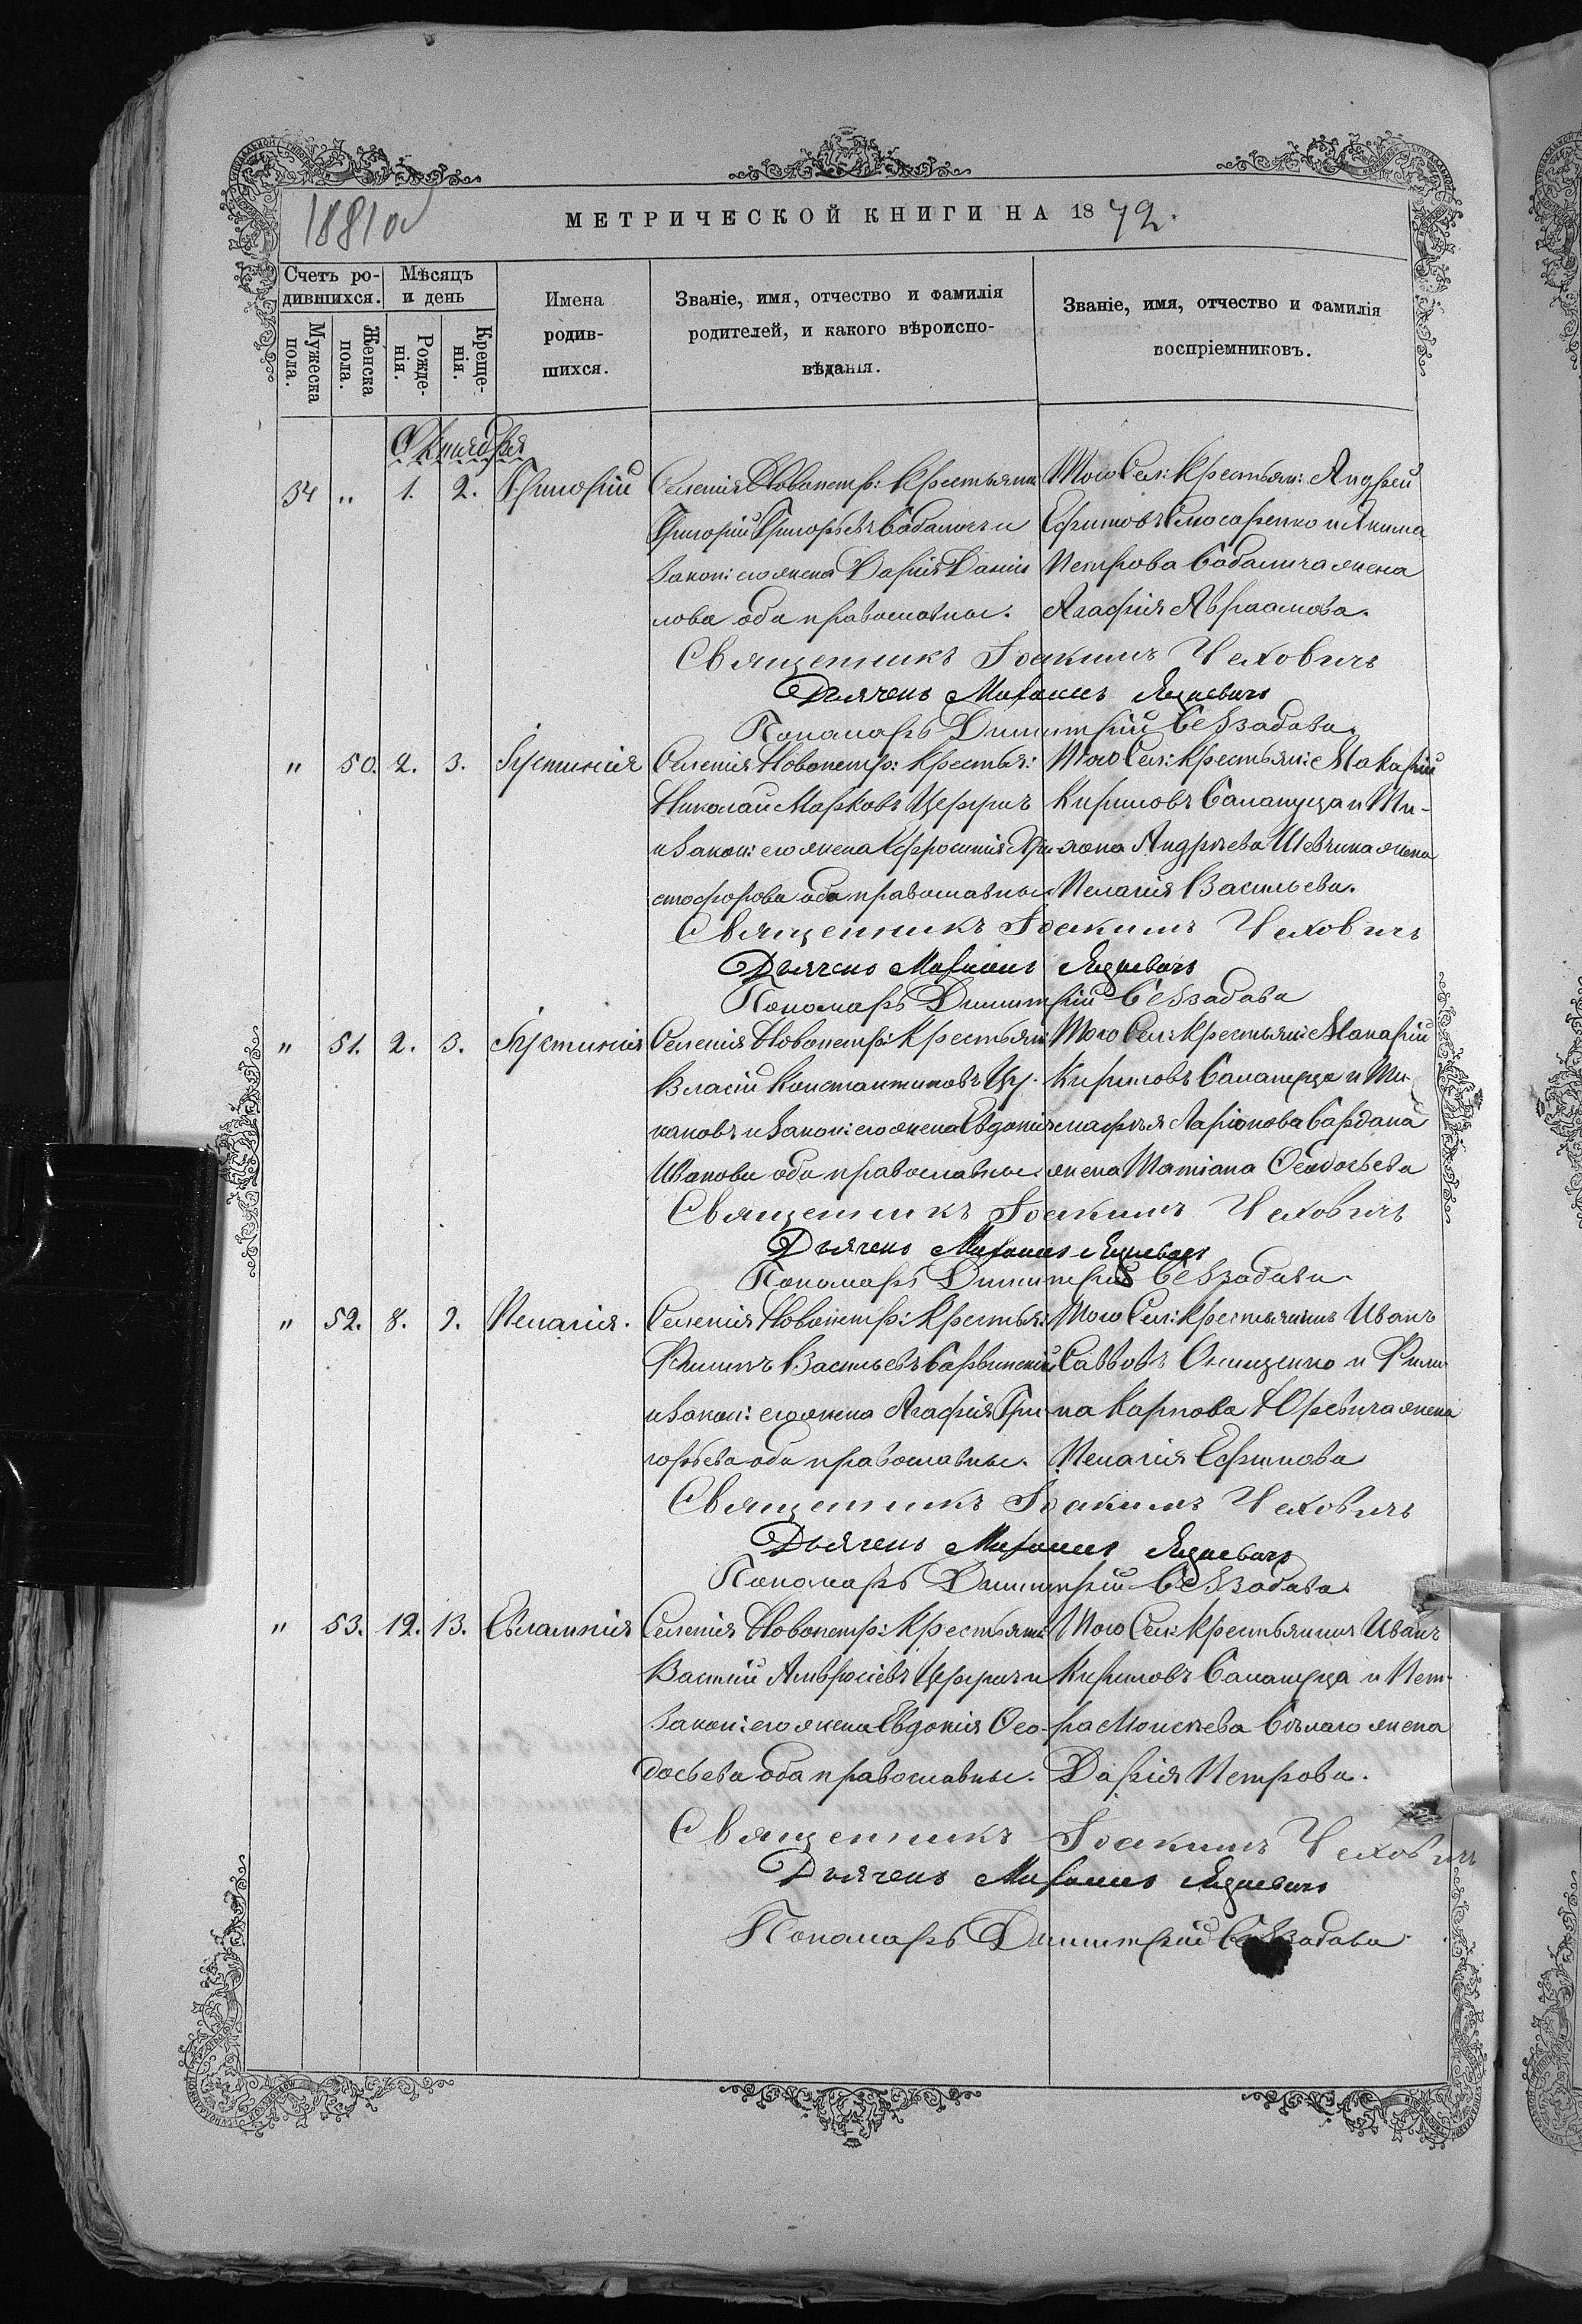 1881 об
МЕТРИЧЕСКОЙ КНИГИ НА 1872.
Счетъ родившихся.
Мѣсяцъ и день
Мужеска пола.
Женска пола.
Рожденія.
Крещенія.
Имена родившихся.
Званіе, имя, отчество и фамилія
родителей, и какого вѣроиспо-
вѣданія.
Званіе, имя, отчество и фамилія
воспріемниковъ.
Октября
34 " 1. 2. Григорій
Селенія Новопетр: Крестьянин
Григорій Григорьевъ Бабаличъ и
Закон: его жена Дарія Дании
лова оба православные.
Того Сел: Крестьян: Андрей
Ефимовъ Слюсаренко и Якима
Петрова Бабалича жена
Агафія Авраамова.
Священникъ Іоакимъ Чехович
Дьячекъ
Пономарь Димитрий Беззабава.
" 50. 2. 3. Іустинія
Селенія Новопетр: Крестья:
Николай Марковъ
и Закон: его жена Ефросинія Хри
стофорова оба православные
Того Сел: Крестьян: Макарій
Кириловъ Балануца и Ти-
мона Андреева Шевчика жена
Пелагія Васильева.
Священникъ Іоакимъ Чехович
Дьячекъ
Пономарь Димитрій Беззабава
" 51. 2. 3. Іустинія
Селенія Новопетр: Крестьян
Власій Константиновъ Цу-
кановъ и Закон: его жена Евдокія
Иванова оба православные.
Того Сел: Крестьян: Макарій
Кириловъ Балануца и Ти-
мофея Ларіонова Бардана
жена Татіана Феодосьева
Священникъ Іоакимъ Чехович
Дьячекъ
Пономарь Димитрій Беззабава.
" 52. 8. 9. Пелагія.
Селенія Новопетр: Крестья:
Филипъ Васильевъ Барвинскій
и Закон: его жена Агафія Гри-
горьева оба православные.
Того Сел: Крестьянинъ Иванъ
Саввовъ Онищенко и Фили
па Карпова Юревича жена
Пелагія Ефимова
Священникъ Іоакимъ Чехович
Дьячекъ
Пономарь Димитрій Беззабава.
" 53. 12. 13. Евлампія
Селенія Новопетр: Крестьян:
Василий Амвросіевъ
Закон: его жена Евдокія Фео-
досьева оба православные.
Того Сел: Крестьянинъ Иванъ
Кириловъ Балануца и Пет-
ра Моисеева Бѣлаго жена
Дарія Петрова.
Священникъ Іоакимъ Чехович
Дьячекъ
Пономарь Димитрій Беззабава